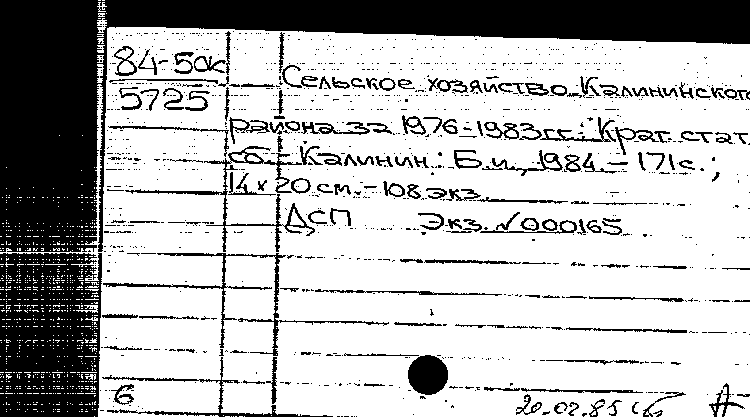 84-5ок
5725
Сельское хозяйство Калининского
района за 1976-1983гг.: Крат. стат.
сб. - Калинин: Б.и., 1984. - 171с.;
14 x 20 см. - 108 экз.
ДСП Экз. №000165
6
20.02.85